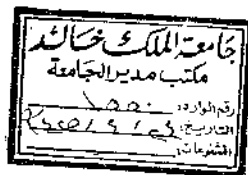 جامعة الملك خالد
مكتب مدير الجامعة
رقم الوارد:
التاريخ:
المشفوعات: